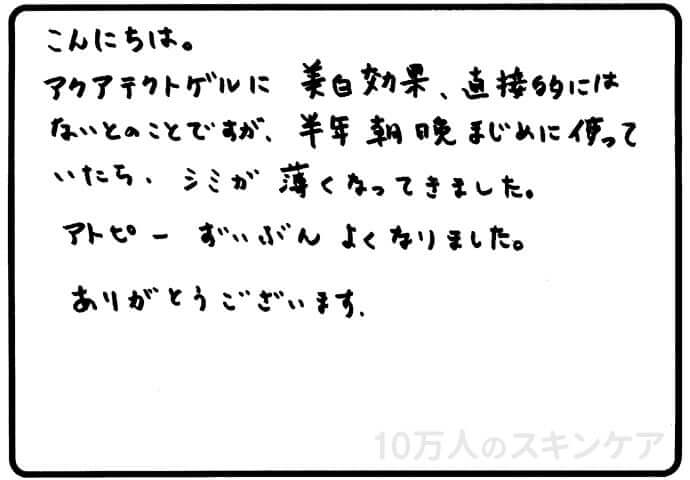 こんにちは。
アクアテクトゲルに 美白効果、直接的には
ないとのことですが、半年 朝晩 まじめに 使って
いたら、シミが 薄くなってきました。
アトピー ずいぶん よくなりました。
ありがとうございます.
10万人のスキンケア